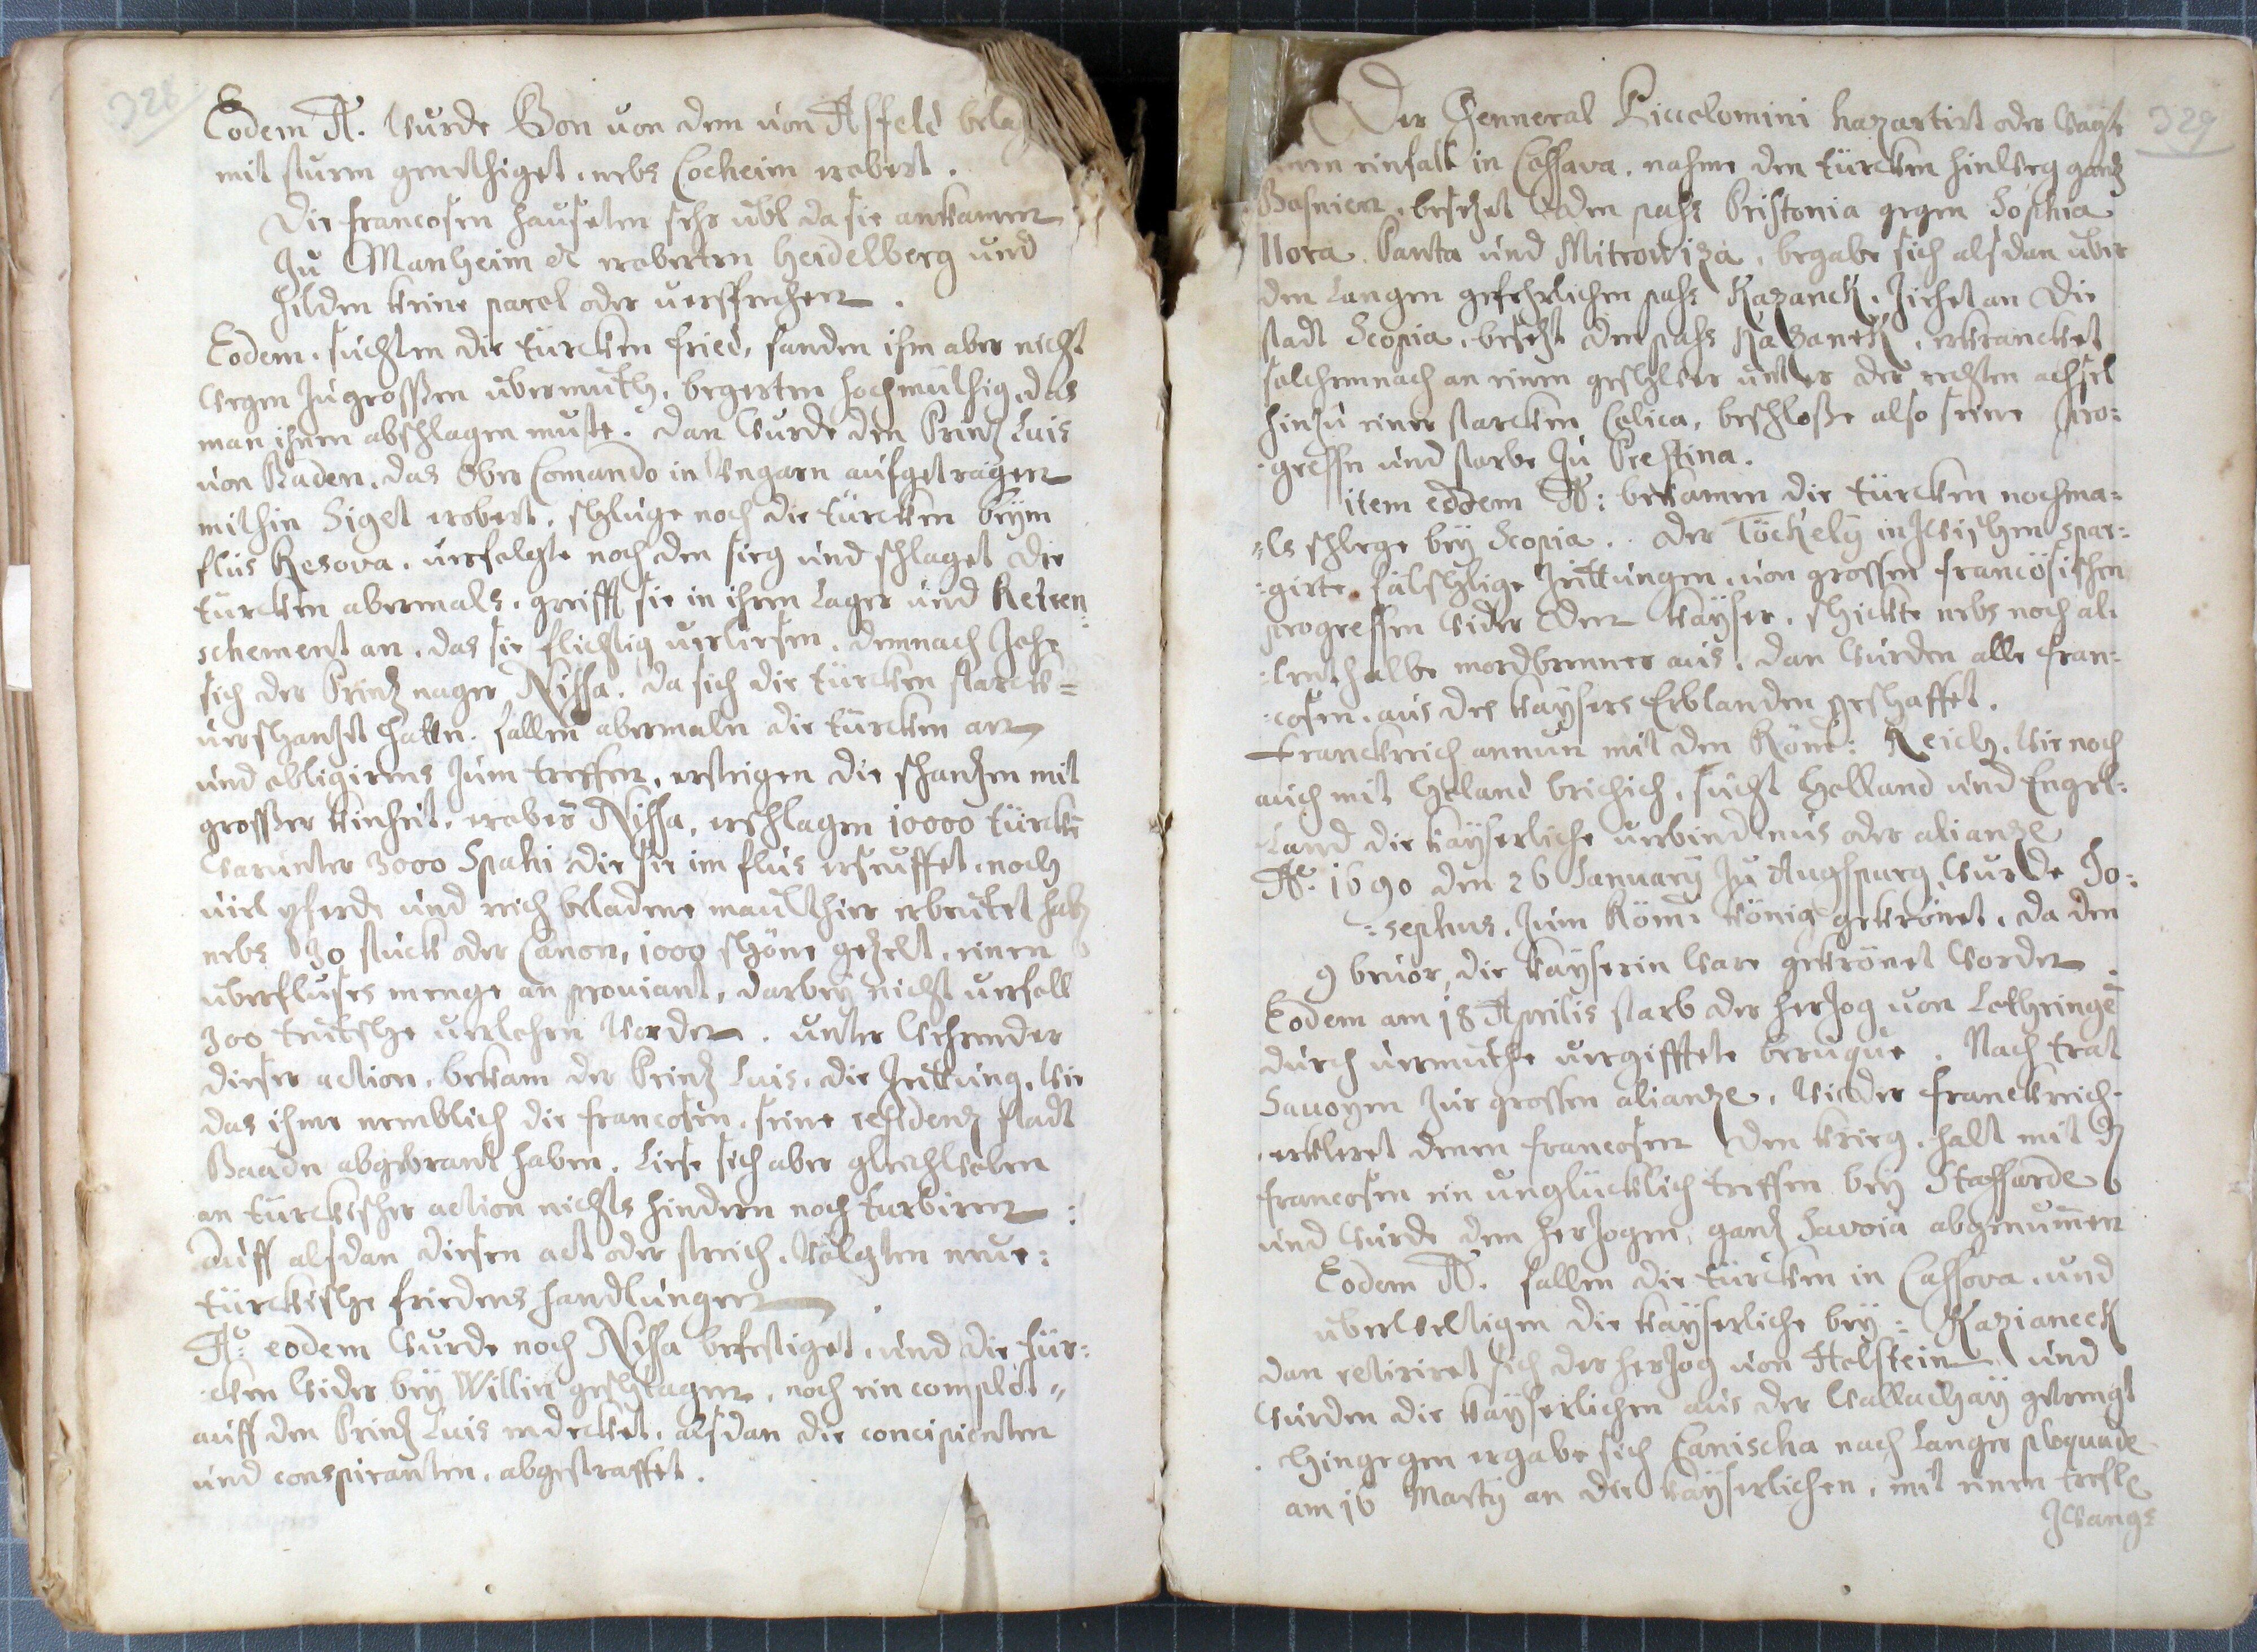 328
Eodem A. wurde Bon von dem von Asfeld bela
mit sturm genöthiget, nebs Cocheim erobert.
Die francosen hauseten sehr übl da sie ankamen
zu Manheim et eroberten Heidelberg und
hilden keine parol oder versprechen.
Eodem, suchten die türcken fried, fanden ihn aber nicht
wegen zu grossen übermuth, begerten hochmüthig, das
man ihnen abschlagen muste. Dan wurde den Prinz Luis
von Baden, das ober Comando in Ungarn aufgetragen
mithin Siget erobert, schluge noch die türcken beym
flus Resova, verfolgte noch den sieg und schlaget die
türcken abermals, greifft sie in ihren Lager und Retren:
schement an, das sie flichtig verliesen, demnach zohe
sich der Prinz nager Nissa, da sich die türcken starck=
verschanzt hatten. fallen abermaln die türcken an
und obligirens zum treffen, ersteigen die schanzen mit
grosser kinheit, erober Nissa, erschlagen 10000 türcke
warunter 3000 Spahi die sie im flus erseuffet, noch
viel pferde und reich beladene maulthier erbeutet hab
nebs 30 stuck oder Canon, 1000 schöne gezelt, einen
überfluses menge an proviant, darbey nicht
300 teutsche verlohren worden. unter wehrender
dieser action, bekam der Prinz Luis, die zeittung, wie
das ihme nemblich die francosen, seine residenz stadt
Baaden abgebrant haben, liese sich aber gleichwolen
an türckischer action nichts hindern noch turbiren:
Auff alsdan diesen act oder streich, volgten neue:
türckische friedens handlungen.
Aº: eodem wurde noch Nissa befestiget, und die tür:
:cken wider bey Willin geschlagen, noch ein complot=
auff den Prinz Luis endecket, alsdan die concipienten
und conspiranten, abgestraffet.
329
Der Genneral Piccolomini hazartirt oder wagte
einfall in Cassava, nahme den türcken hinweg ganz
Bosnien, besezet den pass Pristonia gegen Sophia
Nora. Panta und Mitrowiza, begabe sich alsdan über
den langen gefehrlichen pass Kazanek, ziehet an die
stadt Scopia, besezt den pass Kazanek, erkrancket
solchemnach an einem geschwer unter der rechten achsel
hinzu einer starcken Colica, beschlosse also seine pro:
:gressen und starbe zu Prestina.
item eodem A: bekamen die türcken nochma:
:ls schlege bey Scopia. Der Töckely inzwischen spar:
:girte fälschlige zeittungen, von grossen francösischen
progressen wider den kayser, schickte nebs noch al:
:lenthalbe mordbrenner aus, dan wurden alle fran:
:cosen, aus des kaysers Erblanden geschaffet.
Franckreich annun mit den Röm: Reich, wie noch
auch mit Holand, sucht Holland und Engel:
Land die kayserliche verbindnus oder alianze
Aº: 1690 den 26 January zu Augspurg wurde Jo:
:sephus, zum Röm: könig gekrönet, da den
9 bevor, die kayserin ware gekrönet worden.
Eodem am 18 Aprilis starb der herzog von Lothringe
durch vermuthe vergifftete beruque. Nach trat
Savoyen zur grossen alianze, wieder franckreich.
erkleret denen francosen den krieg, halt mit d
francosen ein unglücklich treffen bey Staffarde
und wurde dem herzogen, ganz Savoia abgenumen
Eodem A. fallen die türcken in Cassova, und
überweltigen die kayserliche bey: Kazianeck
dan retirirt sich der herzog von Holstein und
wurden die kayserlichen aus der Wallachay getrengt
hingegen ergabe sich Canischa nach langer ploquade
am 16 Marty an die kayserlichen, mit einen
zwangs